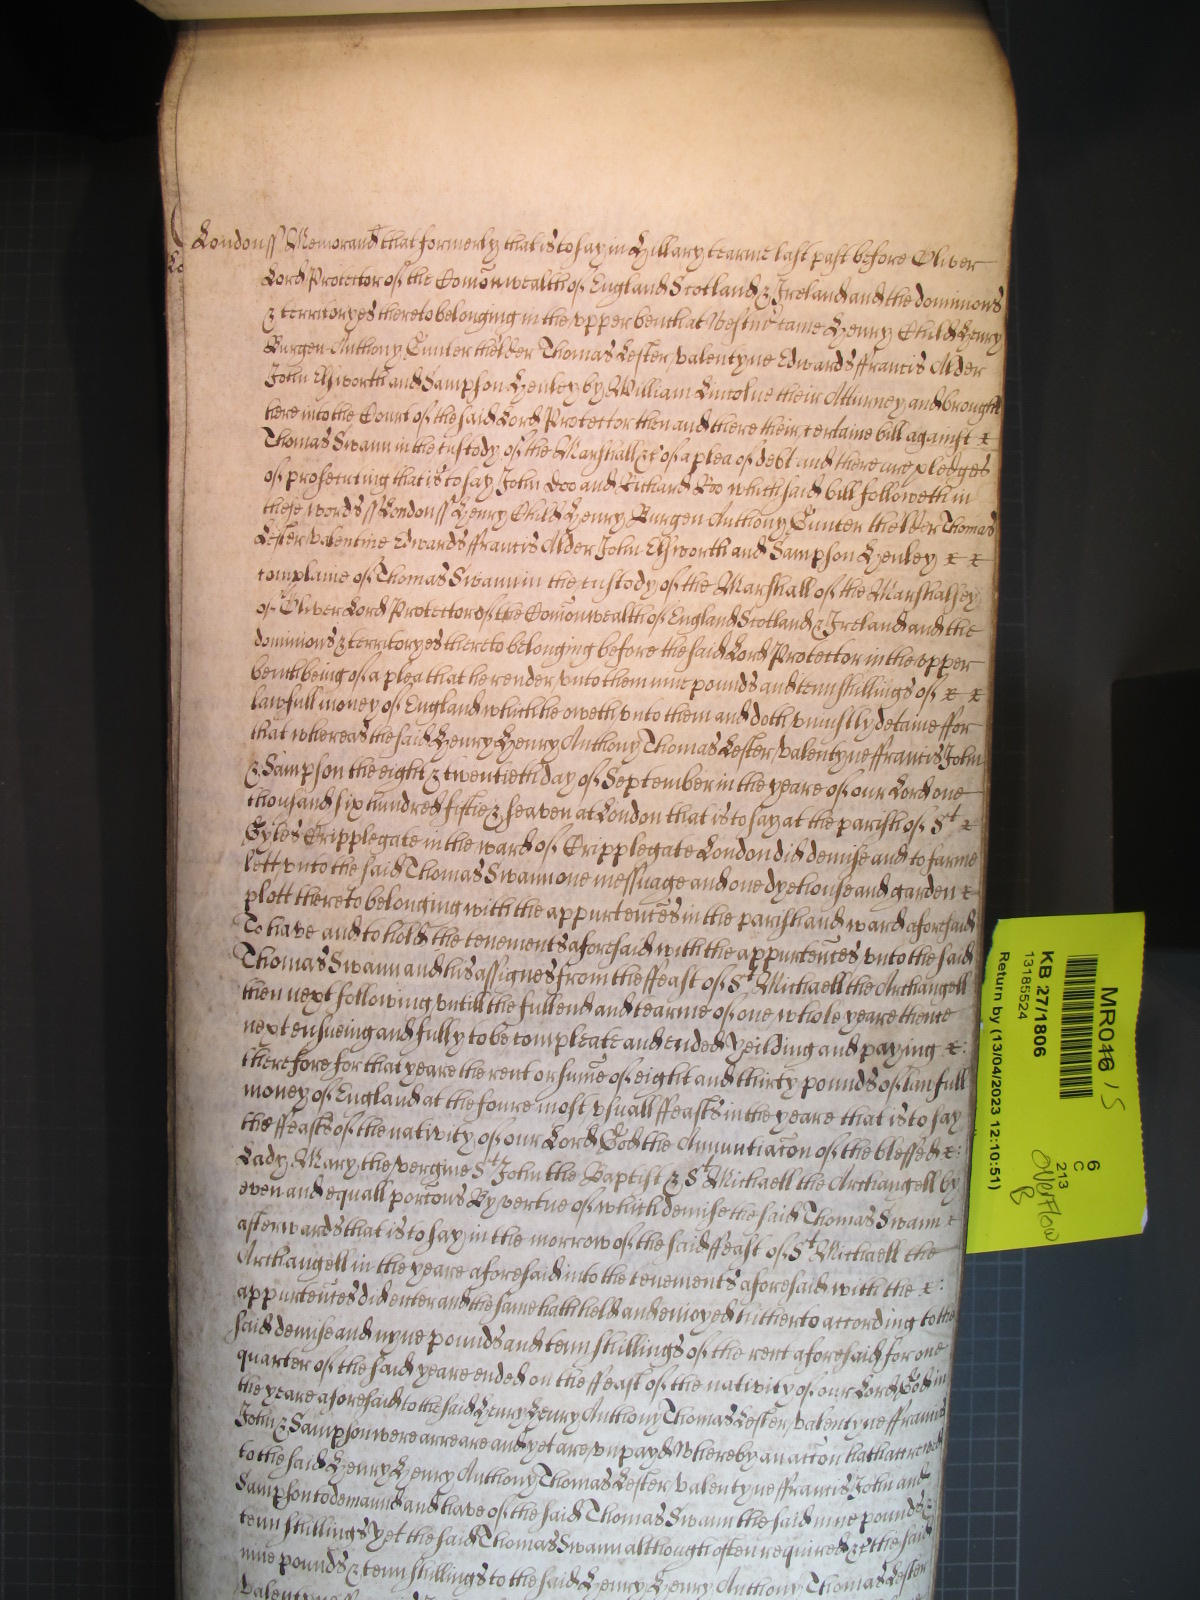 Londonss Memorand that formerly that is to say in Hillary tearme last past before Oliver
Lord Protector of the Comonwealth of England Scotland & Ireland and the dominions
& territoryes thereto belonging in the upper bench at Westmr came Henry Child Henry
Burgen Anthony Gunter thelder Thomas Lester Valentyne Edwards ffrancis Alder
John Elsworth and Sampson Henley by William Lincolne their Atturney and brought
here into the Court of the said Lord Protector then and there their certaine bill against
Thomas Swann in the custody of the Marshall &c of a plea of debt and there are pledges
of prosecuting that is to say John Doo and Richard Roo which said bill followeth in
these words ss London ss Henry Child Henry Burgen Anthony Gunter thelder Thomas
Lester Valentine Edwards ffrancis Alder John Elsworth and Sampson Henley
complaine of Thomas Swann in the custody of the Marshall of the Marshalsey
of Oliver Lord Protector of the Comonwealth of England Scotland & Ireland and the
dominions & territoryes thereto belonging before the said Lord Protector in the upper
bench being of a plea that he render unto them nine pounds and tenn shillings of
lawfull money of England which he oweth unto them and doth uniustly detaine ffor
that whereas the said Henry Henry Anthony Thomas Lester Valentyne ffrancis John
& Sampson the eight & twentieth day of September in the yeare of our Lord one
thousand six hundred fiftie & seaven at London that is to say at the parish of St
Gyles Cripplegate in the ward of Cripplegate London did demise and to farme
lett unto the said Thomas Swann one messuage and one dyehouse and garden
plott thereto belonging with the appurtences in the parish and ward aforesaid
To have and to hold the tenements aforesaid with the appurtences unto the said
Thomas Swann and his assignes from the ffeast of St Michaell the Archangell
then next following untill the full end and tearme of one whole yeare thence
next ensueing and fully to be compleate and ended Yeilding and paying
therefore for that yeare the rent or sume of eight and thirty pounds of lawfull
money of England at the foure most usuall ffeasts in the yeare that is to say
the ffeasts of the nativity of our Lord God the Annuntiacon of the blessed
Lady Mary the vergine St John the Baptist & St Michaell the Archangell by
even and equall porcons By vertue of which demise the said Thomas Swann
afterwards that is to say in the morrow of the said ffeast of St Michaell the
Archangell in the yeare aforesaid into the tenements aforesaid with the
appurtences did enter and the same hath held and enioyed hitherto according to the
said demise and nyne pounds and tenn shillings of the rent aforesaid for one
quarter of the said yeare ended on the ffeast of the nativity of our Lord God in
the yeare aforesaid to the said Henry Henry Anthony Thomas Lester Valentyne ffrancis
John & Sampson were arreare and yet are unpayd Whereby an accon hath accrewed
to the said Henry Henry Anthony Thomas Lester Valentyne ffrancis John and
Sampson to demaund and have of the said Thomas Swann the said nine pounds &
tenn shillings Yet the said Thomas Swann although often required &c the said
nine pounds & tenn shillings to the said Henry Henry Anthony Thomas Lester
Valentyne
MR046 / 5
KB 27/1806
13185524
Return by (13/04/2023 12:10:51)
6
C
213
Overflow
B